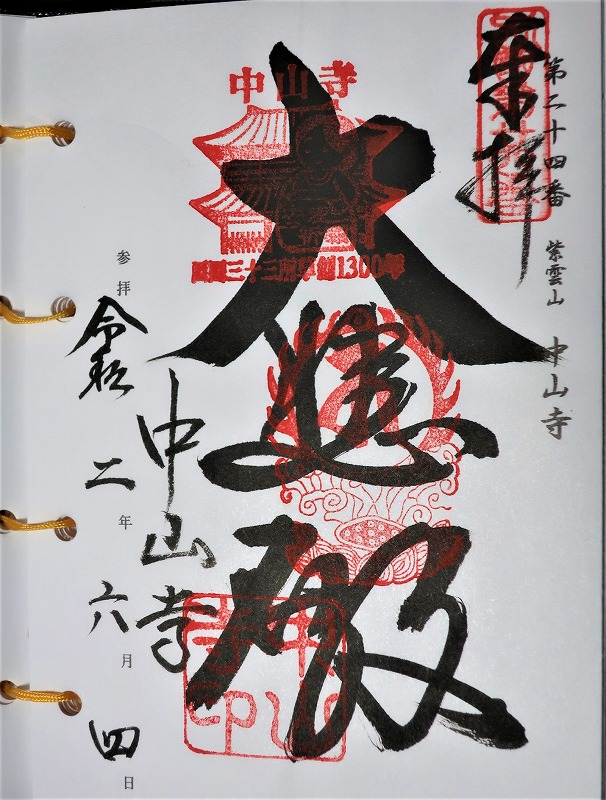 奉拝
第二十四番 紫雲山 中山寺
中山寺
西国三十三所草創1300年
大悲殿
中山寺
参拝 令和二年六月四日